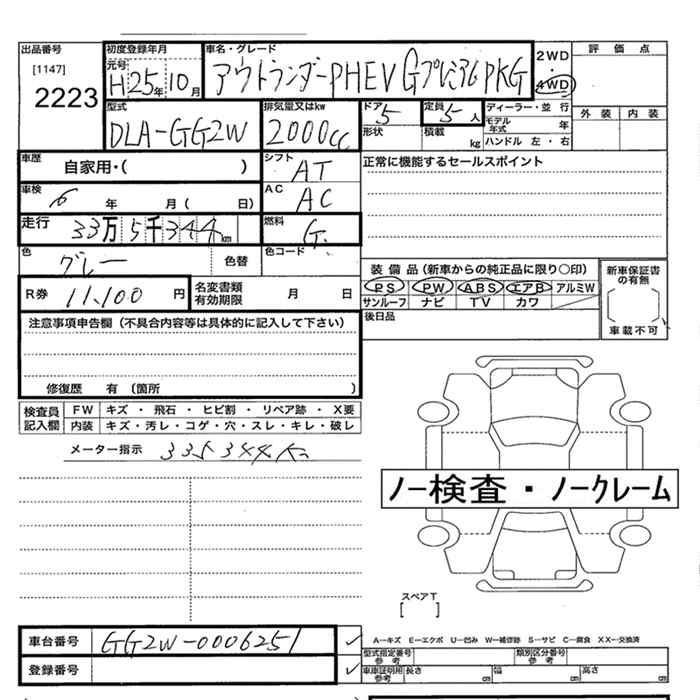 出品番号
[1147]
2223
初度登録年月
元号
H25年10月
車名・グレード
アウトランダーPHEV GプレミアムPKG
2WD
・
4WD
評価点
外装 内装
型式
DLA-GG2W
排気量又はkw
2000cc
ドア
5
形状
定員
5人
積載
kg
ディーラー・並行
モデル年式 年
ハンドル 左・右
車歴
自家用・( )
シフト
AT
車検
6年 月( 日)
AC
AC
走行
33万5千344km
燃料
G.
色
グレー
色替
色コード
正常に機能するセールスポイント
R券 11,100円
名変書類有効期限 月 日
装備品(新車からの純正品に限り○印)
PS PW ABS エアB アルミW
サンルーフ ナビ TV カワ
新車保証書の有無
車載不可
後日品
注意事項申告欄(不具合内容等は具体的に記入して下さい)
修復歴 有(箇所 )
検査員記入欄
FW キズ・飛石・ヒビ割・リペア跡・X要
内装 キズ・汚レ・コゲ・穴・スレ・キレ・破レ
メーター指示 335344km
ノー検査・ノークレーム
スペアT
[ ]
車台番号 GG2W-0006251
登録番号
A−キズ E−エクボ U−凹み W−補修跡 S−サビ C−腐食 XX−交換済
型式指定番号参考
類別区分番号参考
車車証明用参考 長さ cm 幅 cm 高さ cm